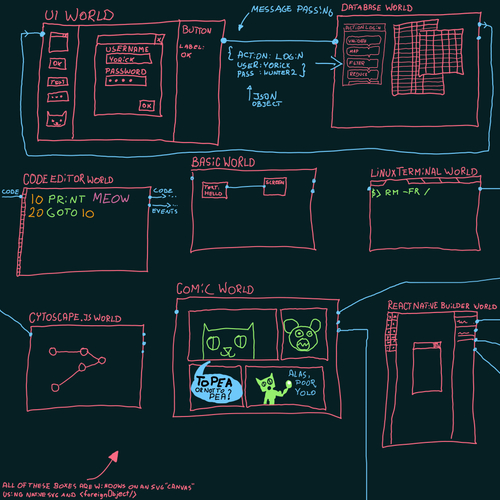 UI WORLD
MESSAGE PASSING
DATABASE WORLD
BUTTON
LABEL:
OK
OK
TEXT
USERNAME
YORICK
PASSWORD
OK
{ ACTION: LOGIN
USER: YORICK
PASS: HUNTER2 }
JSON
OBJECT
ACTION: LOGIN
VALIDATE
MAP
FILTER
REDUCE
CODE EDITOR WORLD
CODE
10 PRINT MEOW
20 GOTO 10
CODE
EVENTS
BASIC WORLD
TEXT:
HELLO
SCREEN
LINUX TERMINAL WORLD
$> RM -FR /
CYTOSCAPE.JS WORLD
COMIC WORLD
TO PEA
OR NOT TO
PEA?
ALAS,
POOR
YOLO
REACT NATIVE BUILDER WORLD
ALL OF THESE BOXES ARE WINDOWS ON AN SVG "CANVAS"
USING NATIVE SVG AND <foreignObject/>